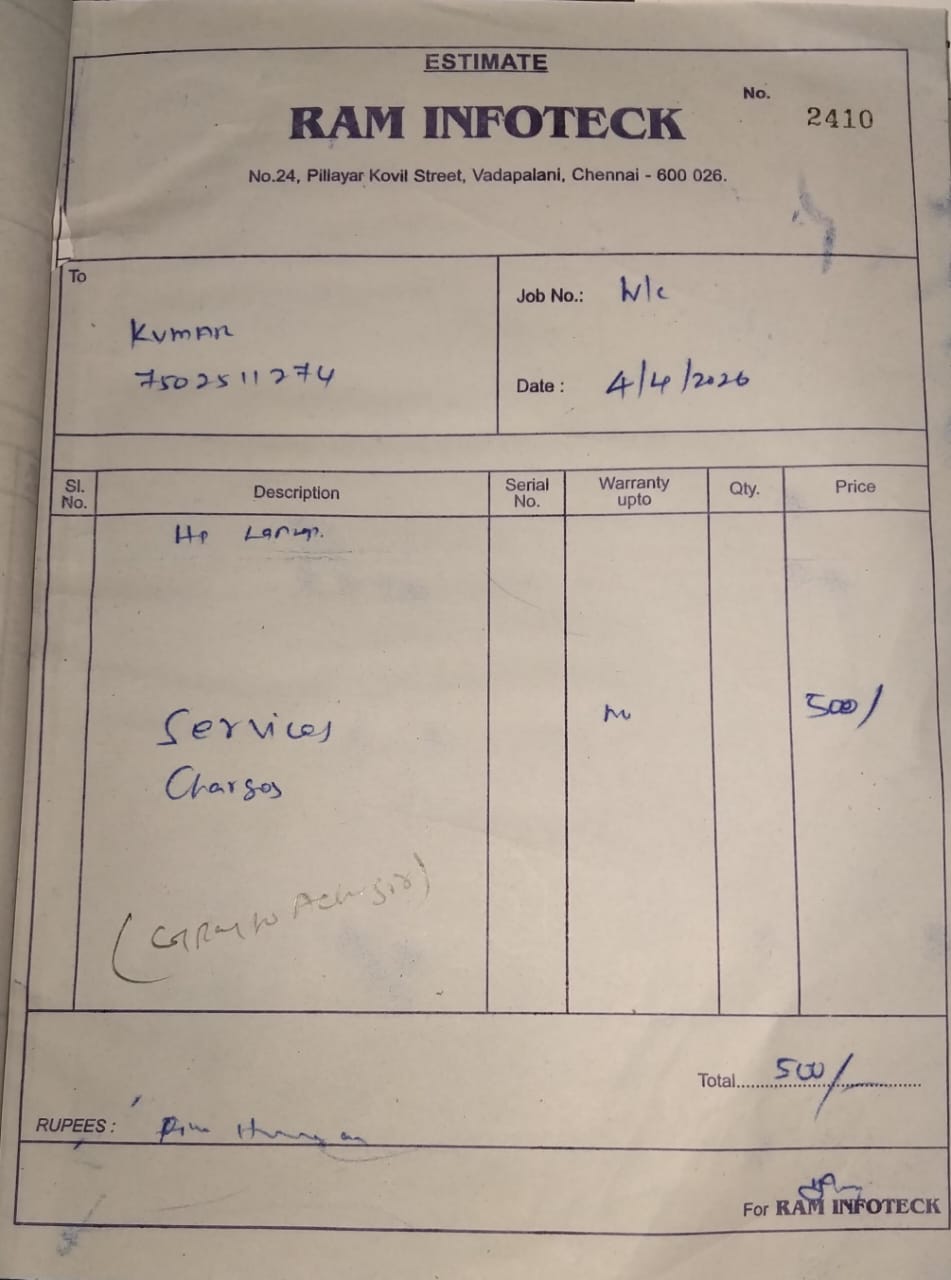 ESTIMATE
No.
RAM INFOTECK
2410
No.24, Pillayar Kovil Street, Vadapalani, Chennai - 600 026.
To
Kumar
7502511274
Job No.: W/c
Date : 4/4/2026
Sl. No.
Description
Serial No.
Warranty upto
Qty.
Price
Hp
Services
500/
Charges
Total 500/
RUPEES :
For RAM INFOTECK